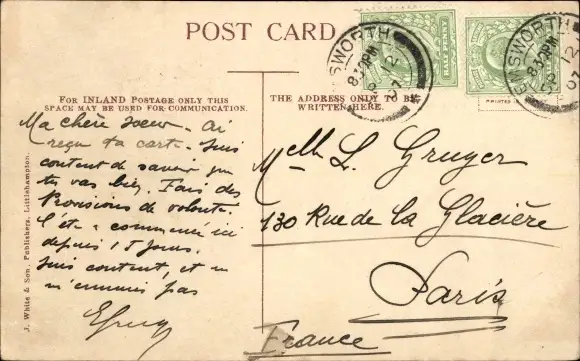 POST CARD
EMSWORTH
8.30PM
12
03
HALF PENNY
EMSWORTH
8.30PM
12
03
FOR INLAND POSTAGE ONLY THIS
SPACE MAY BE USED FOR COMMUNICATION.
THE ADDRESS ONLY TO BE
WRITTEN HERE.
J. White & Son, Publishers, Littlehampton.
Ma chère soeur - Ai
reçu ta carte. Suis
content de savoir que
tu vas bien. Fais des
Provisions de volonté.
L'été a commencé ici
depuis 15 jours.
Suis content, et
m'ennuie pas
Melle L. Gruyer
130 Rue de la Glacière
Paris
France